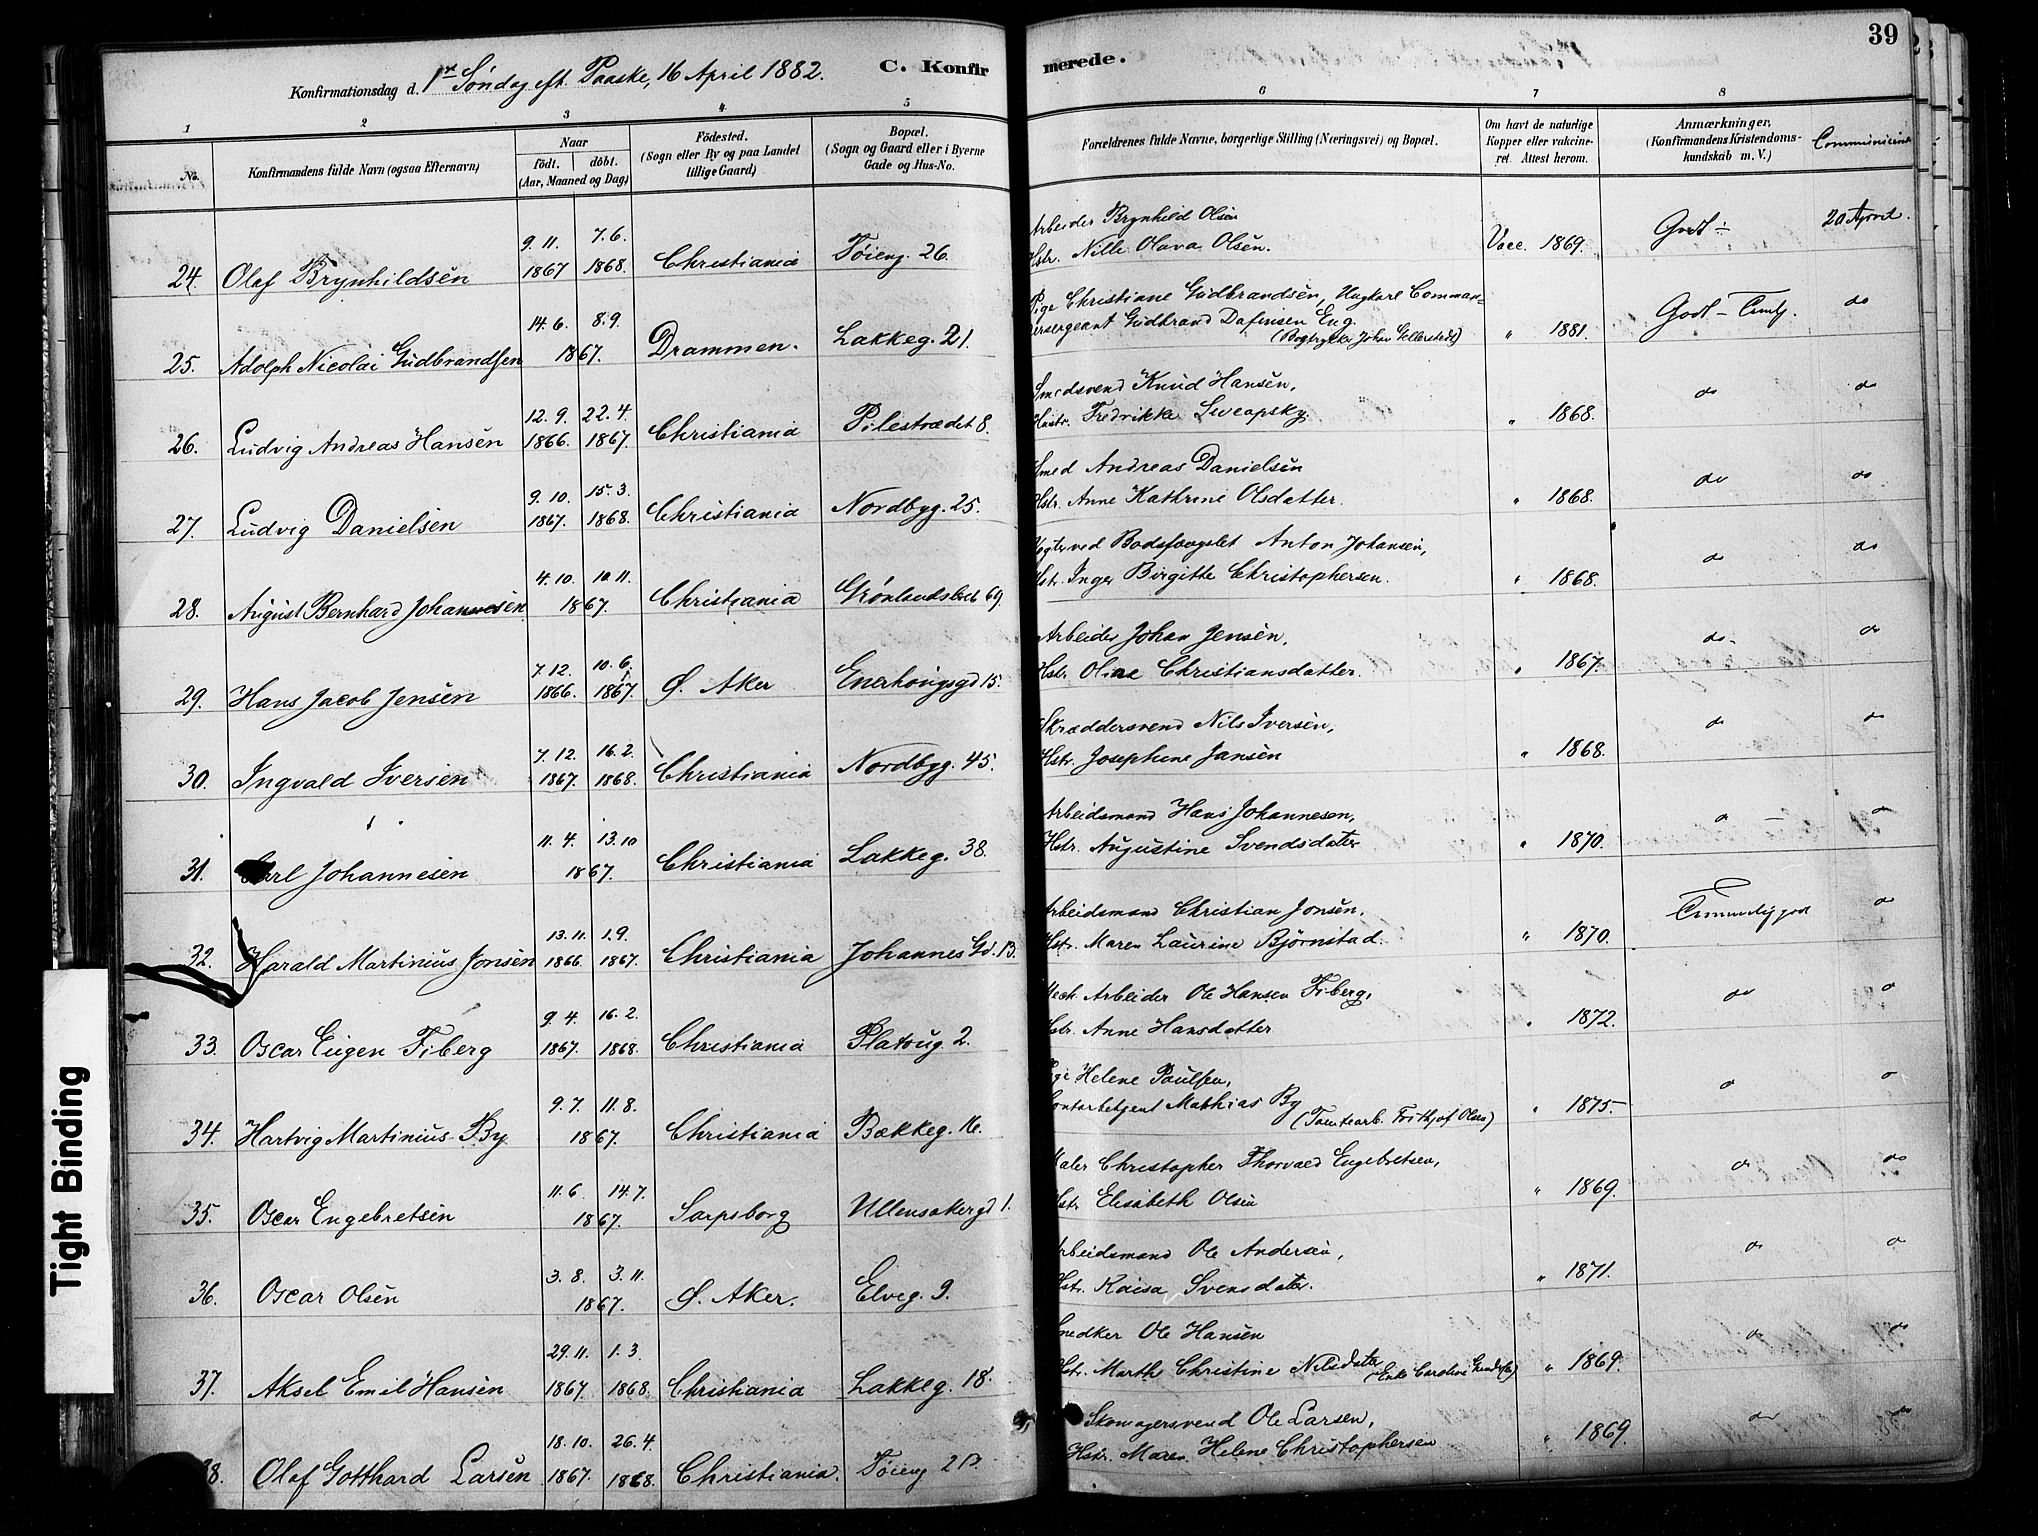 39
Konfirmationsdag d. 1ste Søndag eft. Paaske, 16 April 1882. C. Konfirmerede.
1 2 3 4 5 6 7 8
No.
Konfirmandens fulde Navn (ogsaa Efternavn)
Naar
født. døbt.
(Aar, Maaned og Dag)
Födested.
(Sogn eller By og paa Landet
tillige Gaard)
Bopæl.
(Sogn og Gaard eller i Byerne
Gade og Hus-No.
Forældrenes fulde Navne, borgerlige Stilling (Næringsvei) og Bopæl.
Om havt de naturlige
Kopper eller vakcine-
ret. Attest herom.
Anmærkninger,
(Konfirmandens Kristendoms-
kundskab m. V.)
24. Olaf Brynhildsen 9. 11. 1867 7. 6. 1868. Christiania Tøieng. 26.
Arbeider Brynhild Olsen
Hstr. Nille Olava Olsen. Vacc. 1869. Godt ÷ 20 April.
25. Adolph Nicolai Gudbrandsen 14. 6. 8. 9. 1867. Drammen. Lakkeg. 21.
Pige Christiane Gudbrandsen, Ungkarl Comman=
dersergeant Gudbrand Dafinsen Eng.
(Bogtrykker Johan Gellerstedt) " 1881. Godt - do
26. Ludvig Andreas Hansen 12. 9. 1866. 22. 4. 1867. Christiania Pilestrædet 8.
Smedsvend Knud Hansen,
Hustr. Fredrikke " 1868. do do
27. Ludvig Danielsen 9. 10. 1867. 15. 3. 1868. Christiania Nordbyg. 25.
Smed Andreas Danielsen
Hstr. Anne Kathrine Olsdatter. " 1868. do do
28. August Bernhard Johannesen 4. 10. 10. 11. 1867. Christiania Grønlandsleret 69.
Vogter ved Bodsfængslet Anton Johansen,
Hstr. Inger Birgitte Christophersen. " 1868. do do
29. Hans Jacob Jensen 7. 12. 1866. 10. 6. 1867. Ø. Aker Enerhougsgd 15.
Arbeider Johan Jensen,
Hstr. Oline Christiansdatter. " 1867. do do
30. Ingvald Iversen 7. 12. 1867. 16. 2. 1868. Christiania Nordbyg. 45.
Skræddersvend Nils Iversen,
Hstr. Josephine Jansen " 1868. do do
31. Carl Johannesen 11. 4. 13. 10 1867. Christiania Lakkeg. 38.
Arbeidsmand Hans Johannesen,
Hstr. Augustine Svendsdatter " 1870. do do
32. Harald Martinius Jonsen 13. 11. 1866. 1. 9. 1867. Christiania Johannes Gd. 13.
Arbeidsmand Christian Jonsen,
Hstr. Maren Laurine Bjørnstad. " 1870. do
33. Oscar Eugen Fiberg 9. 4. 1867. 16. 2. 1868. Christiania Platoug. 2.
Mech. Arbeider Ole Hansen Fiberg,
Hstr. Anne Hansdatter " 1872. do do
34. Hartvig Martinius By 9. 7. 11. 8. 1867. Christiania Bækkeg. 16.
Pige Helene Paulsen,
Mathias By
" 1875. do do
35. Oscar Engebretsen 11. 6. 14. 7. 1867. Sarpsborg Ullensakergd 1.
Maler Christopher Thorvald Engebretsen,
Hstr. Elisabeth Olsen " 1869. do do
36. Oscar Olsen 3. 8. 3. 11. 1867. Ø. Aker. Elveg. 9.
Arbeidsmand Ole Andersen,
Hstr. Kaisa Svensdatter. " 1871. do do
37. Aksel Emil Hansen 29. 11. 1867. 1. 3. 1868. Christiania Lakkeg. 18.
Snedker Ole Hansen
Hstr. Marthe Christine Nilsdatter " 1869. do do
38. Olaf Gotthard Larsen 18. 10. 1867. 26. 4. 1868. Christiania. Tøieng
Skomagersvend Ole Larsen,
Hstr. Maren Helene Christophersen " 1869. do do
Tight Binding